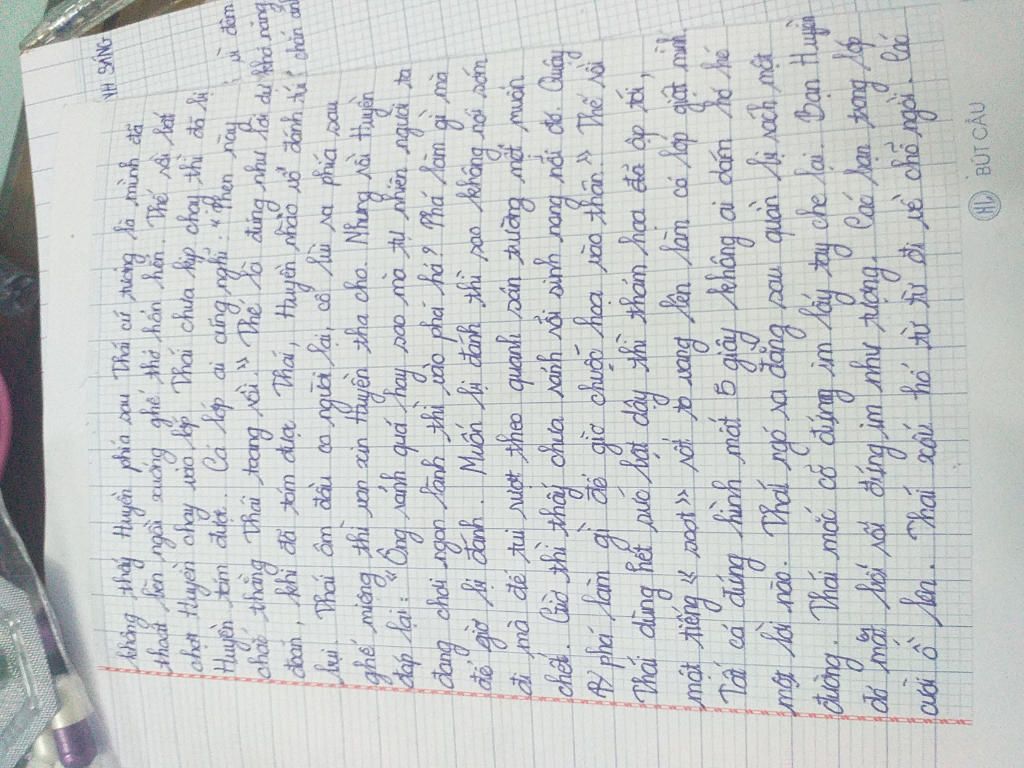 không thấy Huyền phía sau Thái cứ tưởng là mình đã
thoát liền ngồi xuống ghế thở hổn hển. Thế rồi bất
chợt Huyền chạy vào lớp Thái chưa kịp chạy thì đã bị
Huyền tóm được. Cả lớp ai cũng nghĩ: "Phen này
chắc thằng Thái toang rồi." Thế là đúng như lời dự
đoán, khi đã tóm được Thái, Huyền nhào vô đánh tú
bụi. Thái ôm đầu co người lại, cố lùi ra phía sau
ghé miệng thì van xin Huyền tha cho. Nhưng rồi Huyền
đáp lại: "Ông rảnh quá hay sao mà tự nhiên người ta
đang chơi ngon lành thì vào phá há? Phá làm gì mà
để giờ bị đánh. Muốn bị đánh thì sao không nói sớm
đi mà để tui rượt theo quanh sân trường mệt muốn
chết. Giờ thì thấy chưa rảnh rỗi sinh nông nổi đó. Quậy
phá làm gì để giờ chuốc họa vào thân." Thế rồi
Thái dùng hết sức bật dậy thì thảm họa đã ập tới,
một tiếng "soạt" rất to vang lên làm cả lớp giật mình
Tất cả đứng hình mất 5 giây không ai dám hó hé
một lời nào. Thái ngó ra đằng sau quần bị rách một
đường. Thái mắc cỡ đứng im lấy tay che lại. Bạn Huyền
đỏ mặt bối rối đứng im như tượng. Các bạn trong lớp
cười ồ lên. Thái xấu hổ từ từ đi về chỗ ngồi. Các
VH SÁNG
vì đêm
khả năng
chán
BÚT CẦU